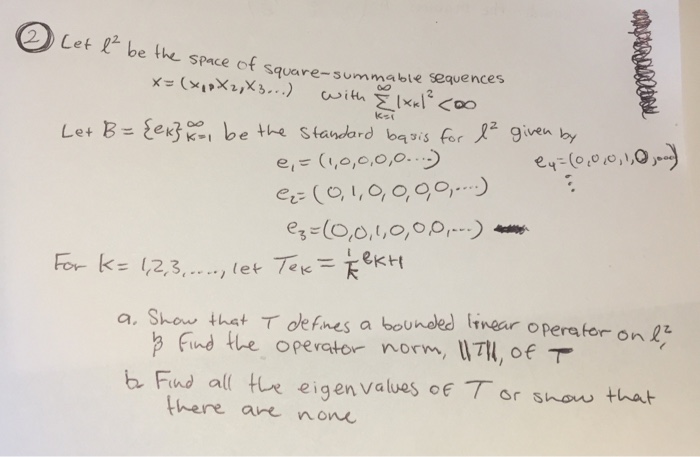 2 Let ℓ² be the space of square-summable sequences
x = (x₁, x₂, x₃...) with ∑_{k=1}^{∞} |xₖ|² < ∞
Let B = {eₖ}_{k=1}^{∞} be the standard basis for ℓ² given by
e₁ = (1,0,0,0,0....) e₄=(0,0,0,1,0,...)
e₂= (0,1,0,0,0,0,....) ⋮
e₃=(0,0,1,0,0,0,...)
For k= 1,2,3,...., let Teₖ = 1/k eₖ₊₁
a. Show that T defines a bounded linear operator on ℓ²,
& find the operator norm, ||T||, of T
b. Find all the eigenvalues of T or show that
there are none